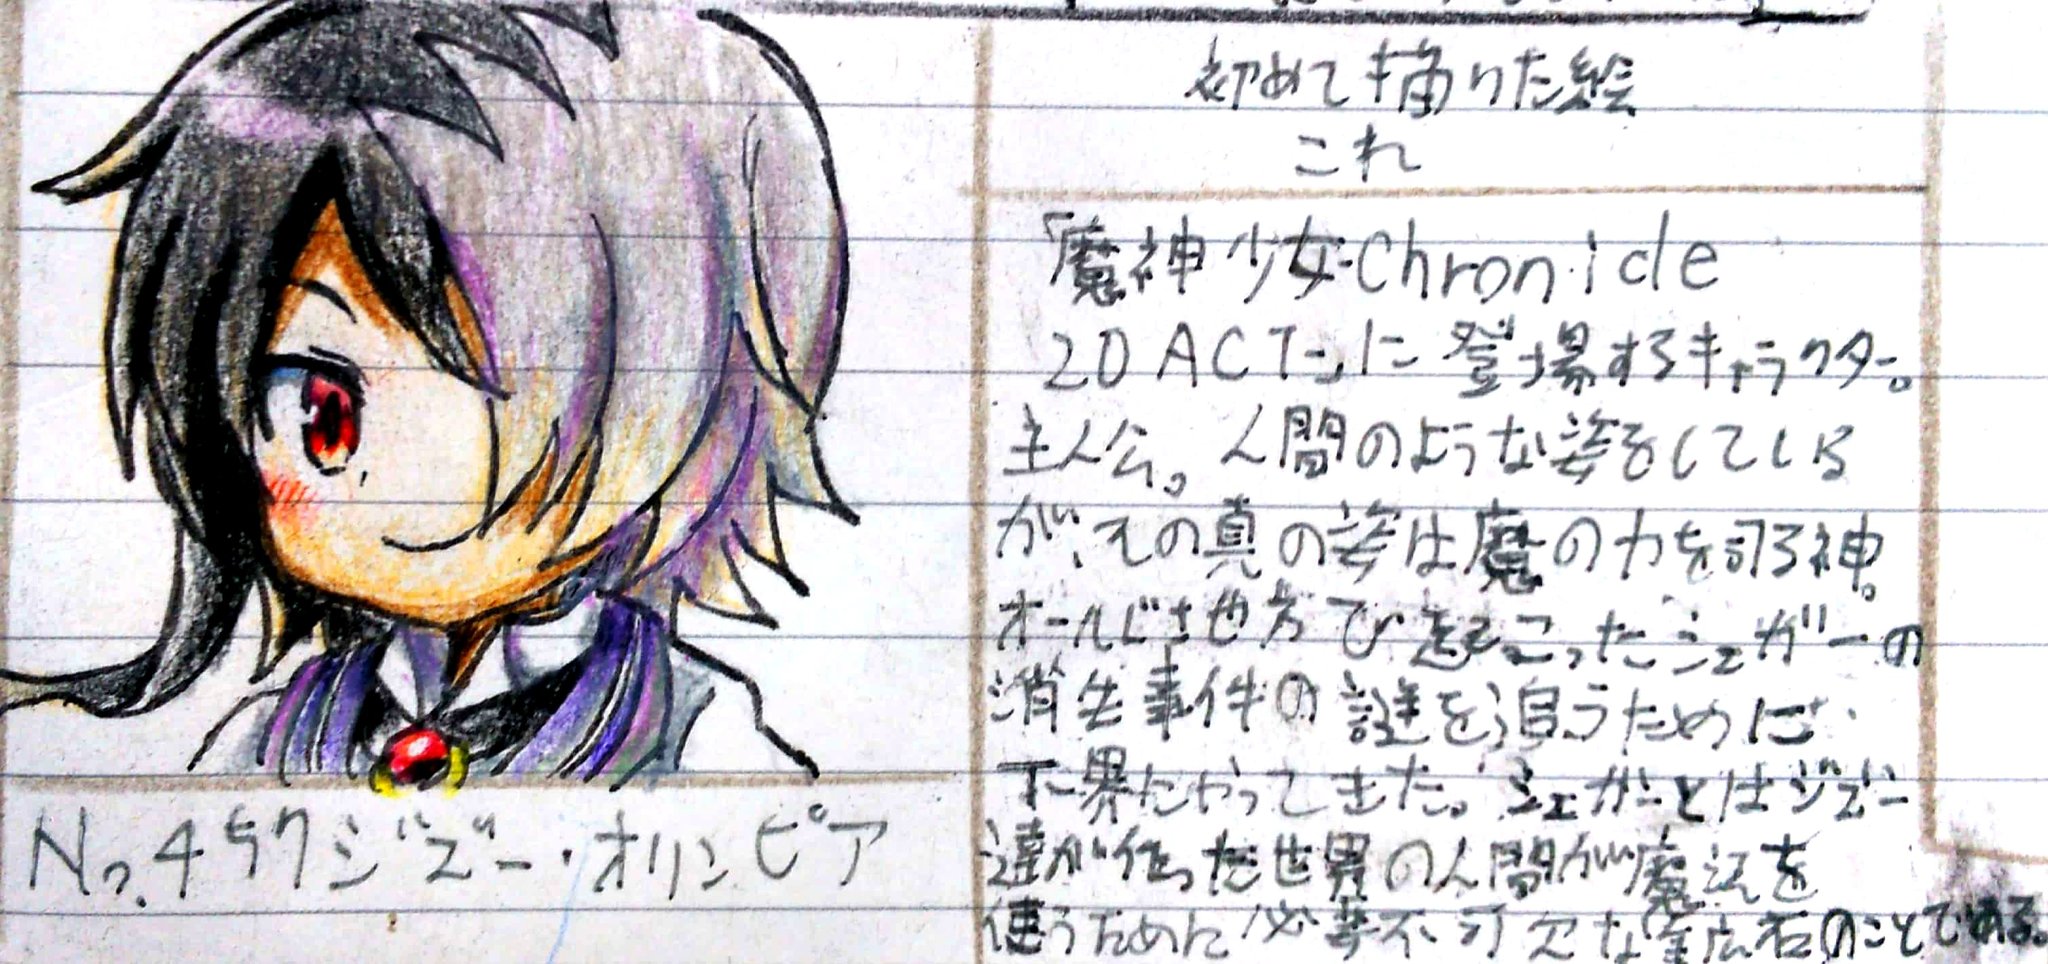 初めて描いた絵
これ
「魔神少女Chronicle
2D ACT」に登場するキャラクター。
主人公。人間のような姿をしている
が、その真の姿は魔の力を司る神。
オールド地方で起こったシェガーの
消失事件の謎を追うために
下界にやってきた。シェガーとはジズー
達が作った世界の人間が魔法を
使うために必要不可欠な鉱石のことである。
No.447ジズー・オリンピア